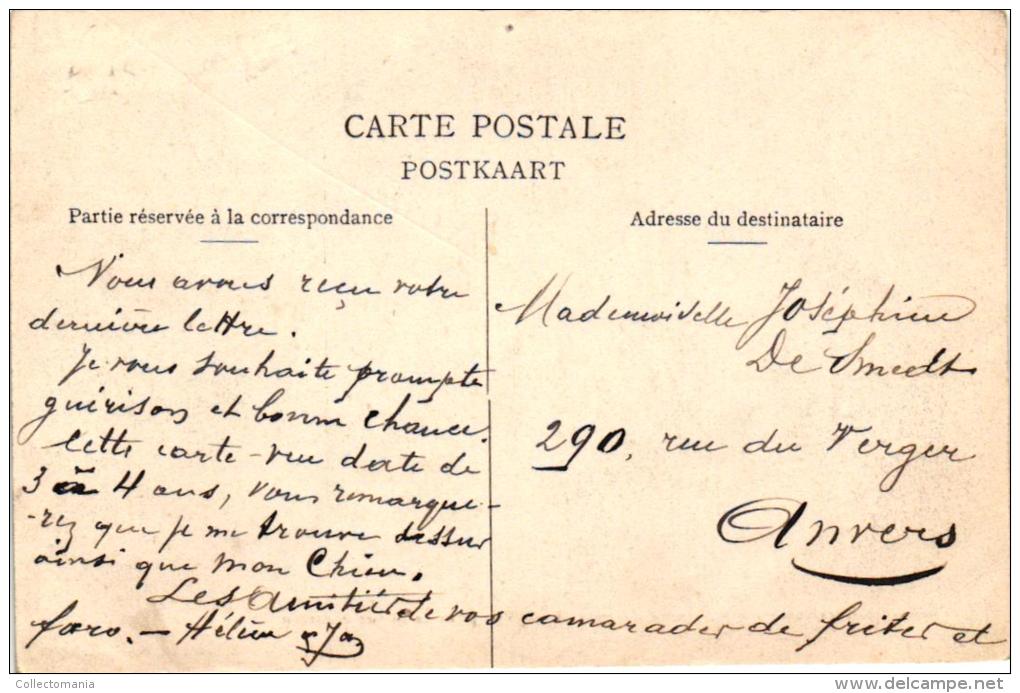 CARTE POSTALE
POSTKAART
Partie réservée à la correspondance
Nous avons reçu votre
dernière lettre.
Je vous souhaite prompte
guérison et bonne chance.
Cette carte-vue date de
3 à 4 ans, vous remarque-
-rez que je me trouve dessus
ainsi que mon Chien.
Les Amitiés de vos camarades de frites et
faro. — Hélène &
Adresse du destinataire
Mademoiselle Joséphine
De Smedt
290, rue du Verger
Anvers
Collectomania
delcampe.net